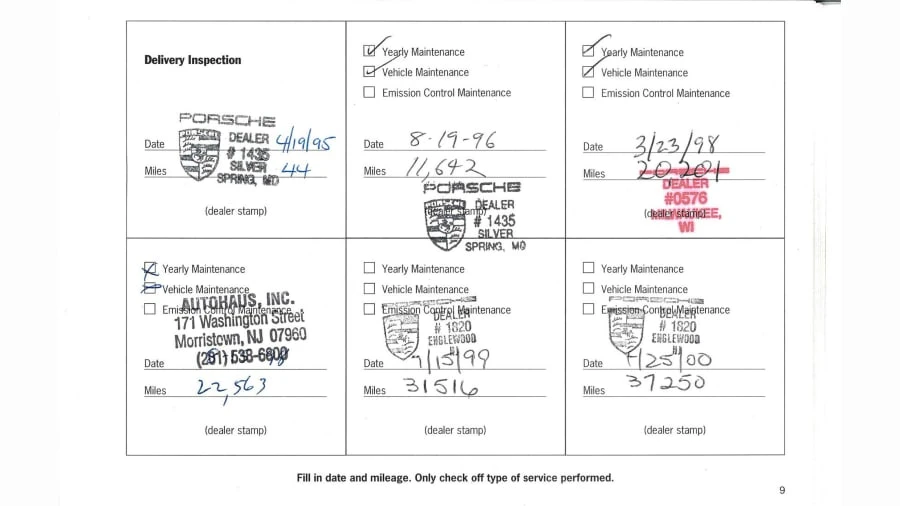 Delivery Inspection
PORSCHE
DEALER
# 1435
SILVER
SPRING, MD
Date 4/19/95
Miles 44
(dealer stamp)
Yearly Maintenance
Vehicle Maintenance
Emission Control Maintenance
Date 8-19-96
Miles 11,642
PORSCHE
(dealer stamp)
DEALER
# 1435
SILVER
SPRING, MD
Yearly Maintenance
Vehicle Maintenance
Emission Control Maintenance
Date 3/23/98
Miles 20201
DEALER
#0576
(dealer stamp)
WI
Yearly Maintenance
Vehicle Maintenance
Emission Control Maintenance
AUTOHAUS, INC.
171 Washington Street
Morristown, NJ 07960
Date
Miles 22,563
(dealer stamp)
Yearly Maintenance
Vehicle Maintenance
Emission Control Maintenance
DEALER
# 1820
ENGLEWOOD
NJ
Date 7/15/99
Miles 31516
(dealer stamp)
Yearly Maintenance
Vehicle Maintenance
Emission Control Maintenance
DEALER
# 1820
ENGLEWOOD
NJ
Date
Miles 37250
(dealer stamp)
Fill in date and mileage. Only check off type of service performed.
9